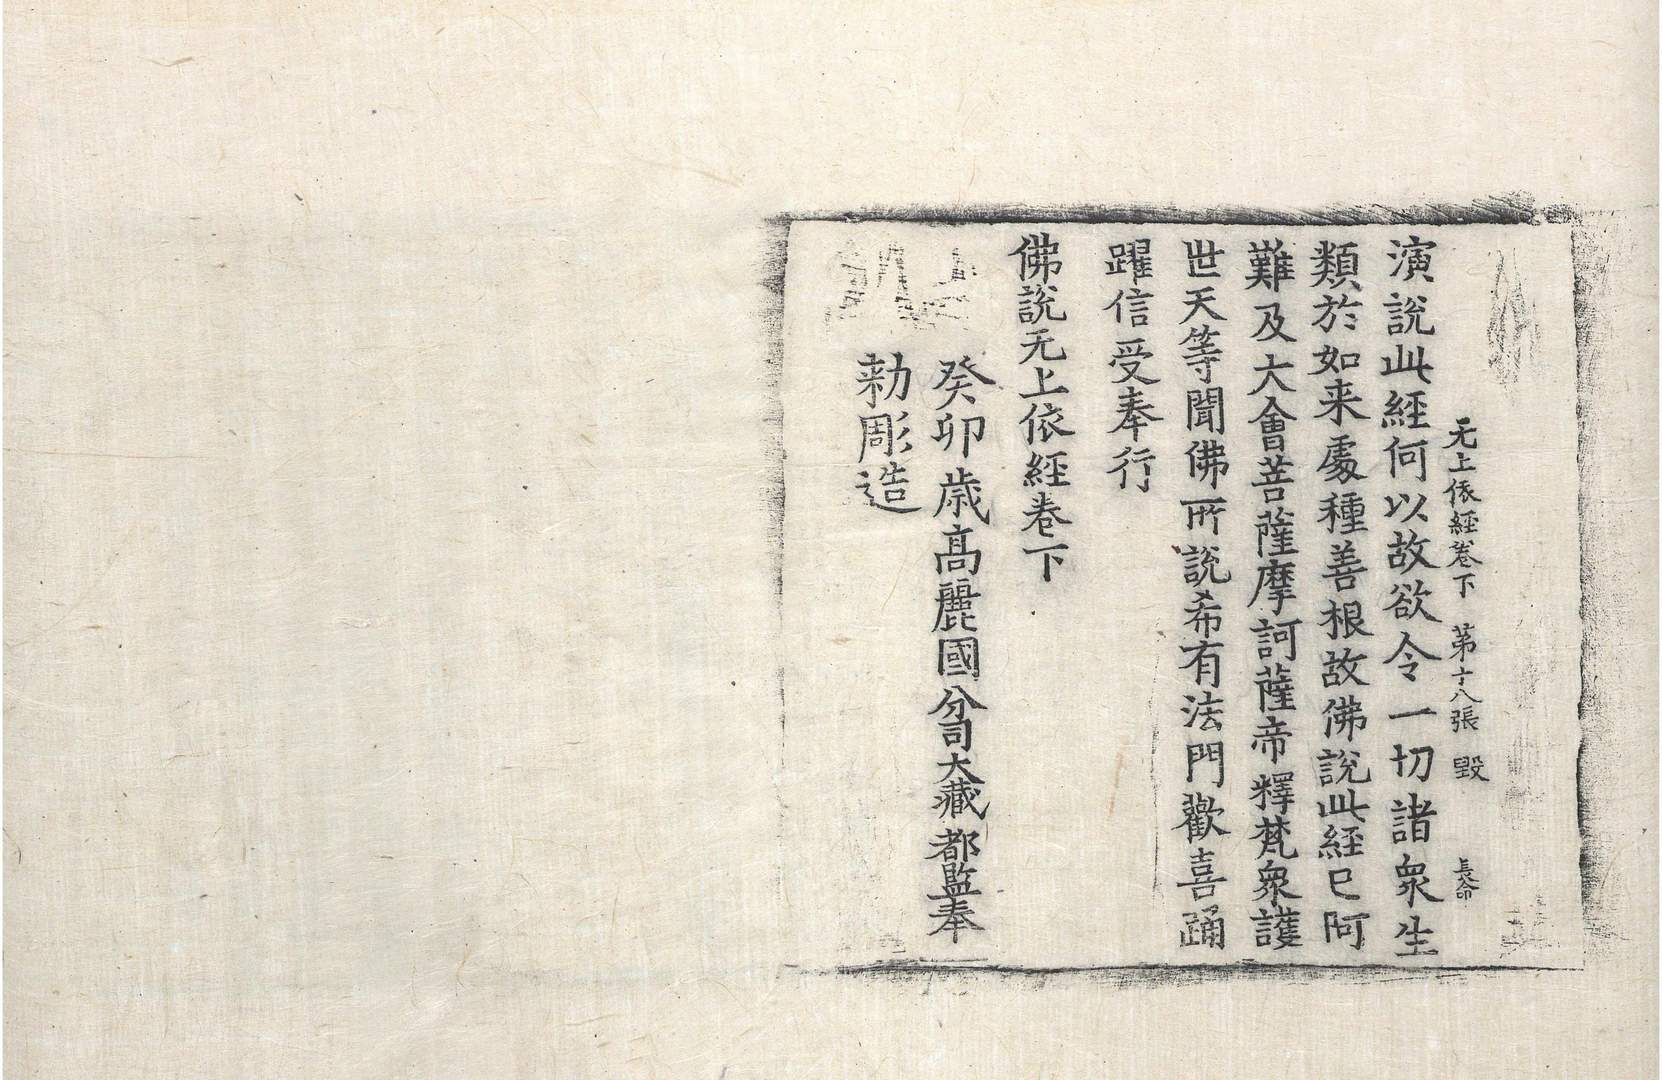 无上依經卷下 第十八張 毀 長命
演說此經何以故欲令一切諸衆生
類於如来處種善根故佛說此經已阿
難及大會菩薩摩訶薩帝釋梵衆護
世天等聞佛所說希有法門歡喜踊
躍信受奉行
佛說无上依經卷下
癸卯歳高麗國分司大藏都監奉
勑彫造